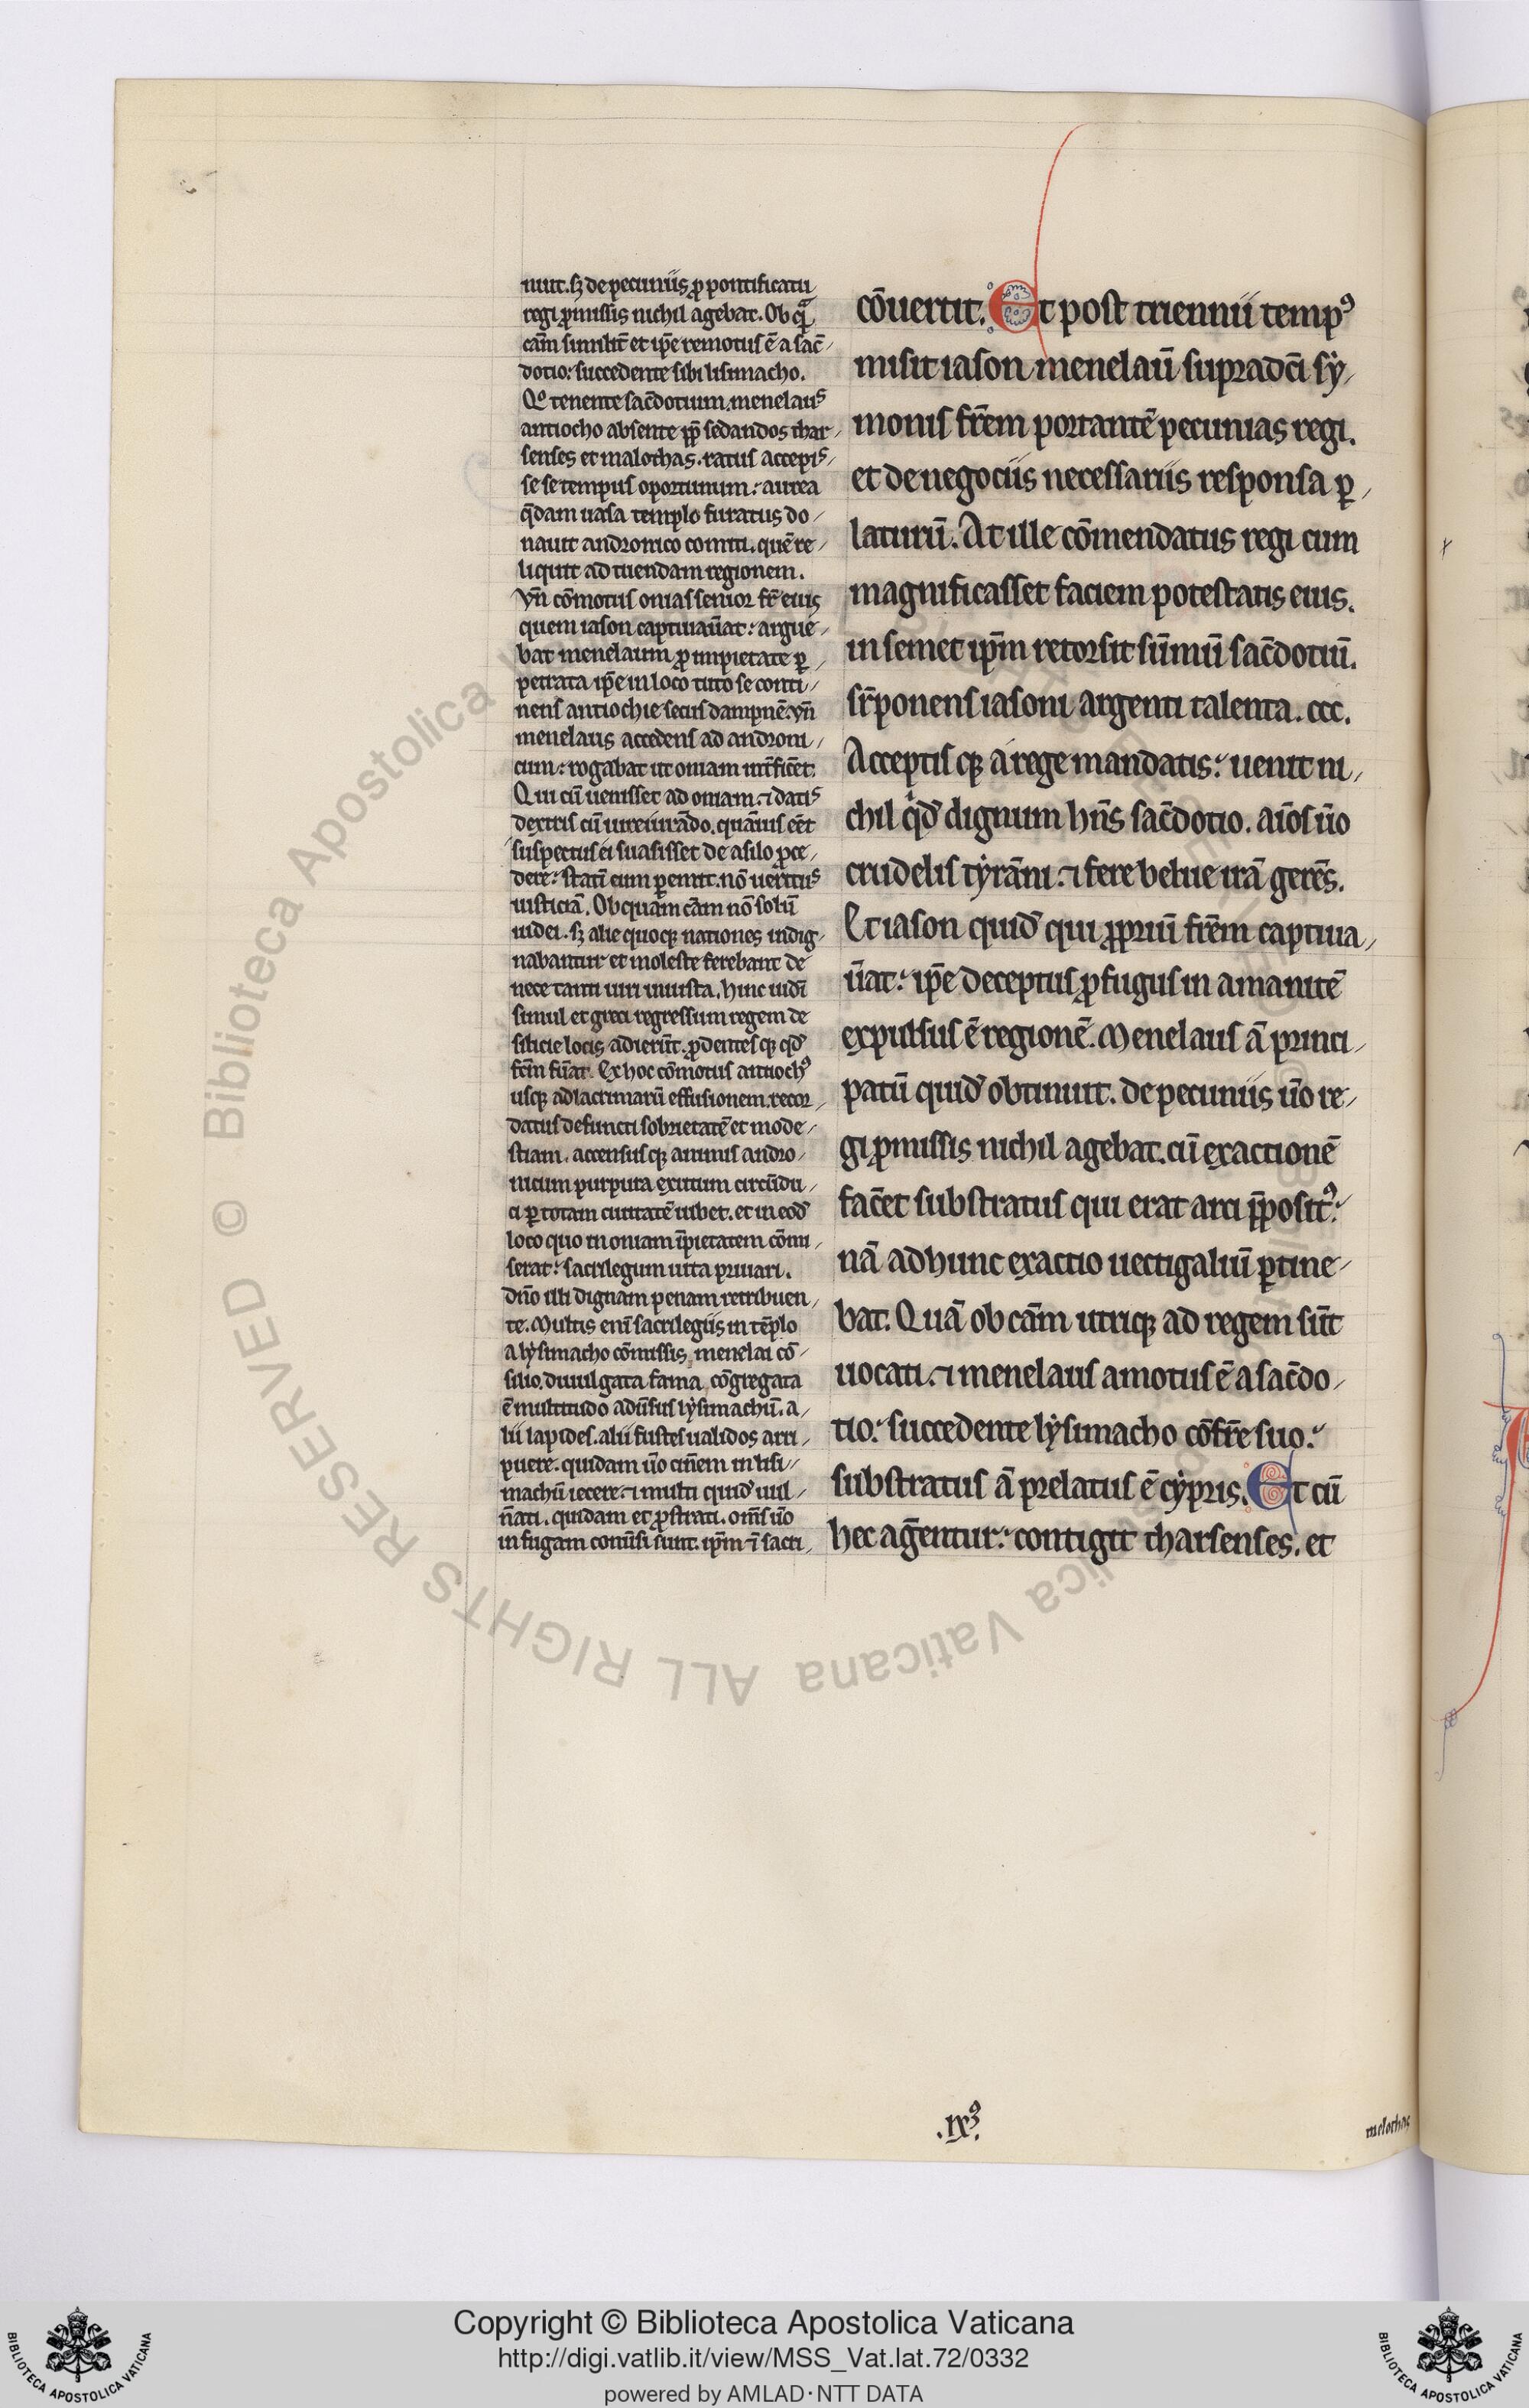 nuit. sꝫ de pecuniis ꝓ pontificatu
regi ꝓmissis nichil agebat. Ob qᷓ
cām similit̄ et ip̄e remotus ē a sac̄
dotio: succedente sibi lisimacho.
Qͦ tenente sac̄dotium. menelaus
antiocho absente ꝓp̄ sedandos thar
senses et malothas. ratus accepis
se se tempus oportunum: aurea
q̄dam uasa templo furatus do
nauit andronico comiti. quē re
liquit ad tuendam regionem.
Vn̄ cōmotus onias senior fr̄ eius
quem iason captiuau̅at: argue
bat menelaum ꝓ impietate ꝑ
petrata ip̄e in loco tuto se conti
nens antiochie secus dampnē. vn̄
menelaus accedens ad androni
cum: rogabat ut oniam int̄fic̄et.
Qui cū uenisset ad oniam ⁊ datis
dextris cū iureiurādo. quāuis eēt
suspectus ei suasisset de asilo ꝓce
dere: statī eum ꝑemit. nō ueritus
iusticiā. Ob quam cām nō solū
iudei. sꝫ alie quoqꝫ nationes indig
nabantur et moleste ferebant de
nece tanti uiri iniusta. hinc iudī
simul et greci regressum regem de
silicie locis adierūt. ꝓdentesqꝫ qd̄
fr̄m fu̅at. Ex hoc cōmotus antiochꝰ
usqꝫ ad lacrimarū effusionem. recor
datus defuncti sobrietatē et mode
stiam. accensusqꝫ animis andro
nicum purpura exutum circūdu
ci ꝑ totam ciuitatē iubet. et in eod̄
loco quo in oniam īpietatem cōmi
serat: sacrilegum uita priuari.
dn̄o illi dignam penam retribuen
te. Multis enī sacrilegiis in tēplo
a lẏsimacho cōmissis menelai cō
silio. diuulgata fama cōgregata
ē multitudo adu̅sus lẏsimachū. a
lii lapides. alii fustes ualidos arri
puere. quidam u̅o cin̄em in lisi
machū iecere. ⁊ multi quid̄ uul
n̄ati. quidam et ꝓstrati. om̄s u̅o
in fugam conu̅si sunt. ip̄m ⁊̄ sacri
cōuertit. Et post triennii tempꝰ
misit iason menelaū supradc̄i sẏ
monis fr̄em portantē pecunias regi.
et de negociis necessariis responsa ꝑ
laturū. At ille cōmendatus regi cum
magnificasset faciem potestatis eius.
in semet ip̄m retorsit sūmū sac̄dotiū.
sr̄ponens iasoni argenti talenta. ccc.
Acceptisqꝫ a rege mandatis: uenit ni
chil qd̄ dignum hn̄s sac̄dotio. aīos u̅o
crudelis tẏrāni. ⁊ fere belue irā gerēs.
Et iason quid̄ qui ꝓpriū fr̄em captiua
u̅at: ip̄e deceptus ꝓfugus in amanitē
expulsus ē regionē. Menelaus ā princi
patū quid̄ obtinuit. de pecuniis u̅o re
gi ꝓmissis nichil agebat. cū exactionē
fac̄et substratus qui erat arci p̄positꝰ:
nā ad hunc exactio uectigaliū ꝑtine
bat. Quā ob cām utriqꝫ ad regem sūt
uocati. ⁊ menelaus amotus ē a sac̄do
tio: succedente lẏsimacho cōfr̄e suo:
substratus ā prelatus ē cẏpris. Et cū
hec ag̅entur: contigit tharsenses. et
.ixꝰ.
melothas
© Biblioteca Apostolica Vaticana ALL RIGHTS RESERVED
Copyright © Biblioteca Apostolica Vaticana
http://digi.vatlib.it/view/MSS_Vat.lat.72/0332
powered by AMLAD·NTT DATA
BIBLIOTECA APOSTOLICA VATICANA
BIBLIOTECA APOSTOLICA VATICANA